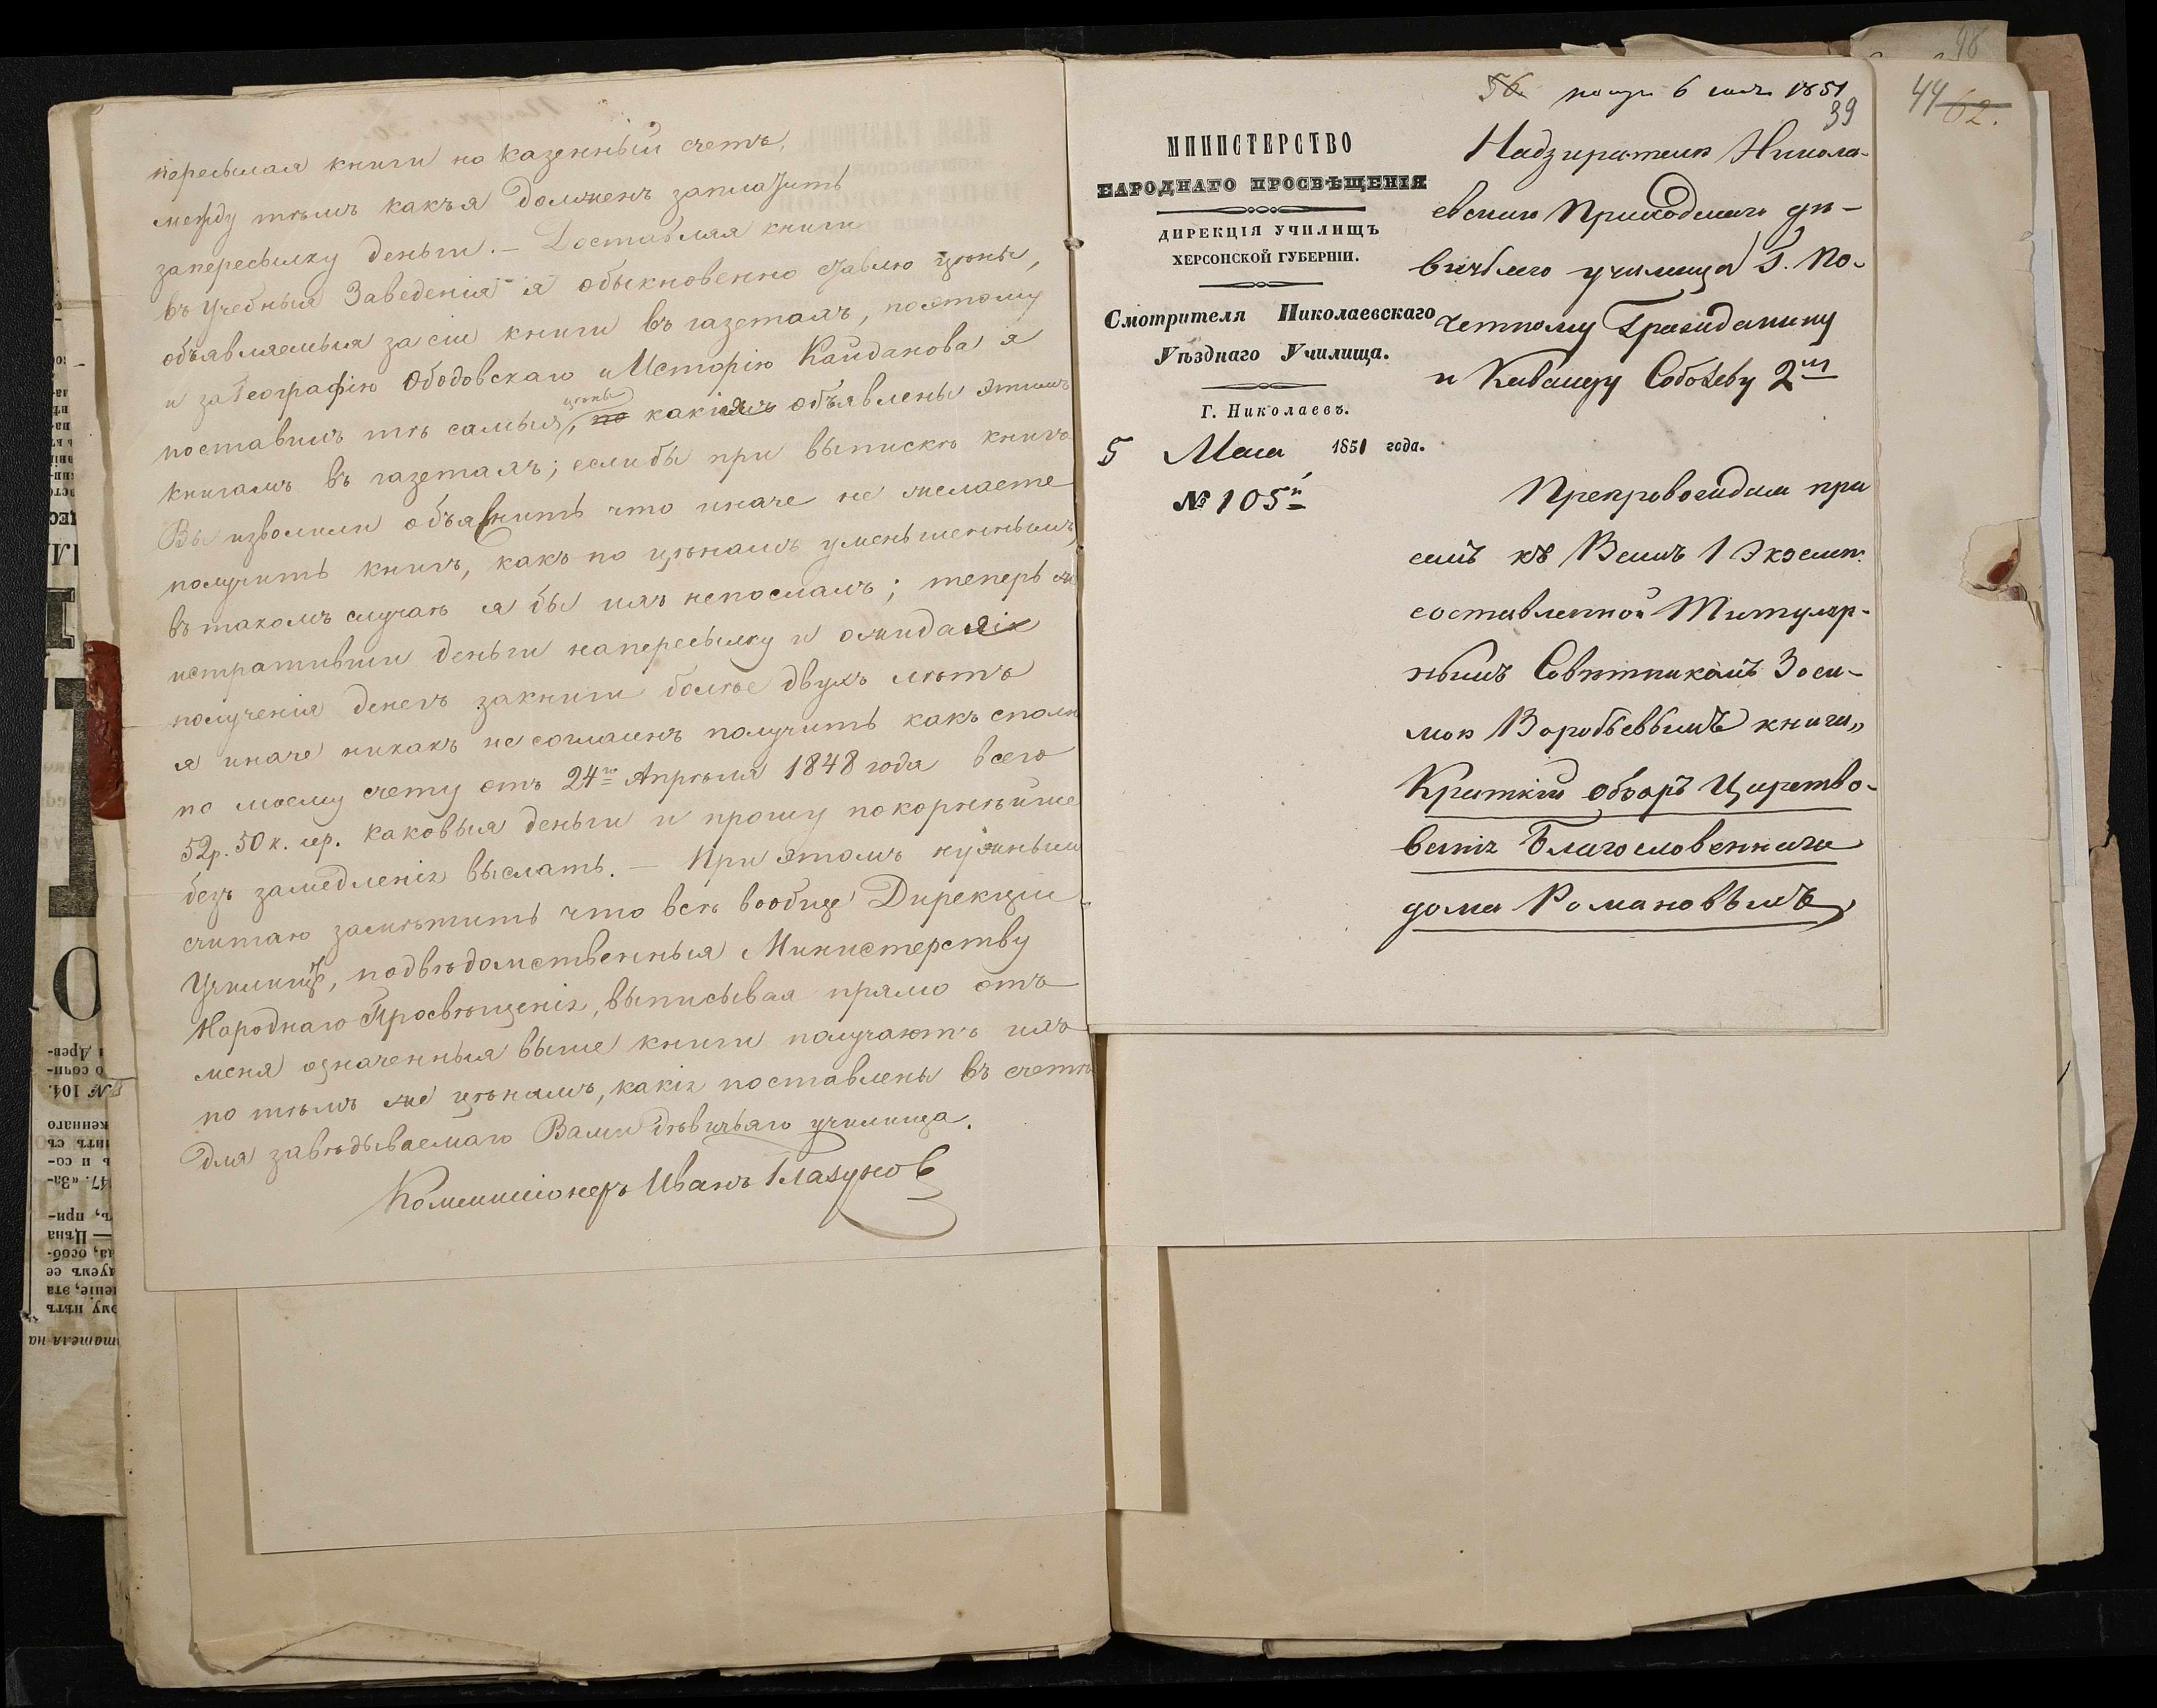 пересылая книги на казенный счетъ,
между тѣмъ какъ я долженъ заплатить
за пересылку деньги. — Доставляя книги
въ Учебныя Заведенія я обыкновенно ставлю цѣны,
объявляемыя за сіи книги въ газетахъ, поэтому
и за Географію Ободовскаго и Исторію Кайданова я
поставилъ тѣ самыя цѣны, какія объявлены этимъ
книгамъ въ газетахъ; если бы при выпискѣ книгъ
Вы изволили объяснить что иначе не желаете
получить книгъ, какъ по цѣнамъ уменьшеннымъ,
въ такомъ случаѣ я бы ихъ непослалъ; теперь же
истративши деньги на пересылку и ожидая
полученія денегъ за книги болѣе двухъ лѣтъ
я иначе никакъ не согласенъ получить какъ сполн
по моему счету отъ 24го Апрѣля 1848 года всего
52р. 50 к. сер. каковыя деньги и прошу покорнѣйше
безъ замедленія выслать. — При этомъ нужнымъ
считаю замѣтить что всѣ вообще Дирекціи
Училищъ, подвѣдомственныя Министерству
Народнаго Просвѣщенія, выписывая прямо отъ
меня означенныя выше книги получаютъ ихъ
по тѣмъ же цѣнамъ, какія поставлены въ счетѣ
для завѣдываемаго Вами дѣвичьяго училища.
Коммиссіонеръ Иванъ Глазунов
56. 6 1851
39
44 62.
98
МИНИСТЕРСТВО
НАРОДНАГО ПРОСВѢЩЕНІЯ
ДИРЕКЦІЯ УЧИЛИЩЪ
ХЕРСОНСКОЙ ГУБЕРНІИ.
Смотрителя Николаевскаго
Уѣзднаго Училища.
Г. Николаевъ.
5 Мая 1851 года.
№ 105й
Надзирателю Никола-
евскаго Приходскаго дѣ-
вичьяго училища Г. По-
четному Гражданину
и Кавалеру Соболеву 2му
Препровождаю при
семъ къ Вамъ 1 Экземп.
составленной Титуляр-
нымъ Совѣтникомъ Зоси-
мою Воробьевымъ книги,,
Краткій обзоръ Царство-
ванія Благословеннаго
дома Романовыхъ